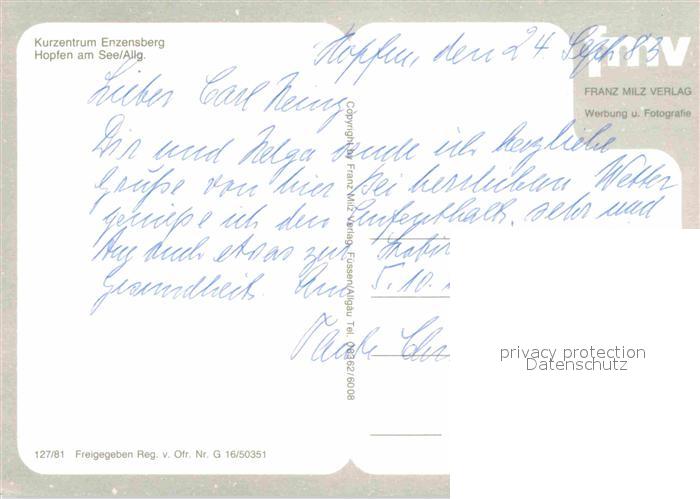 Kurzentrum Enzensberg
Hopfen am See/Allg.
fmv
FRANZ MILZ VERLAG
Werbung u. Fotografie
Hopfen, den 24. Sept. 83
Lieber Carl Heinz
Dir und Helga sende ich herzliche
Grüße von hier. Bei herrlichem Wetter
genieße ich den Aufenthalt sehr und
tue auch etwas zur
Gesundheit. Am 5.10.
Tante
Copyright by Franz Milz Verlag, Füssen/Allgäu Tel. 08362/6008
privacy protection
Datenschutz
127/81 Freigegeben Reg. v. Ofr. Nr. G 16/50351